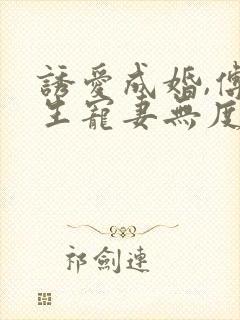 誘愛成婚,傅
生寵妻無度
祁劍連